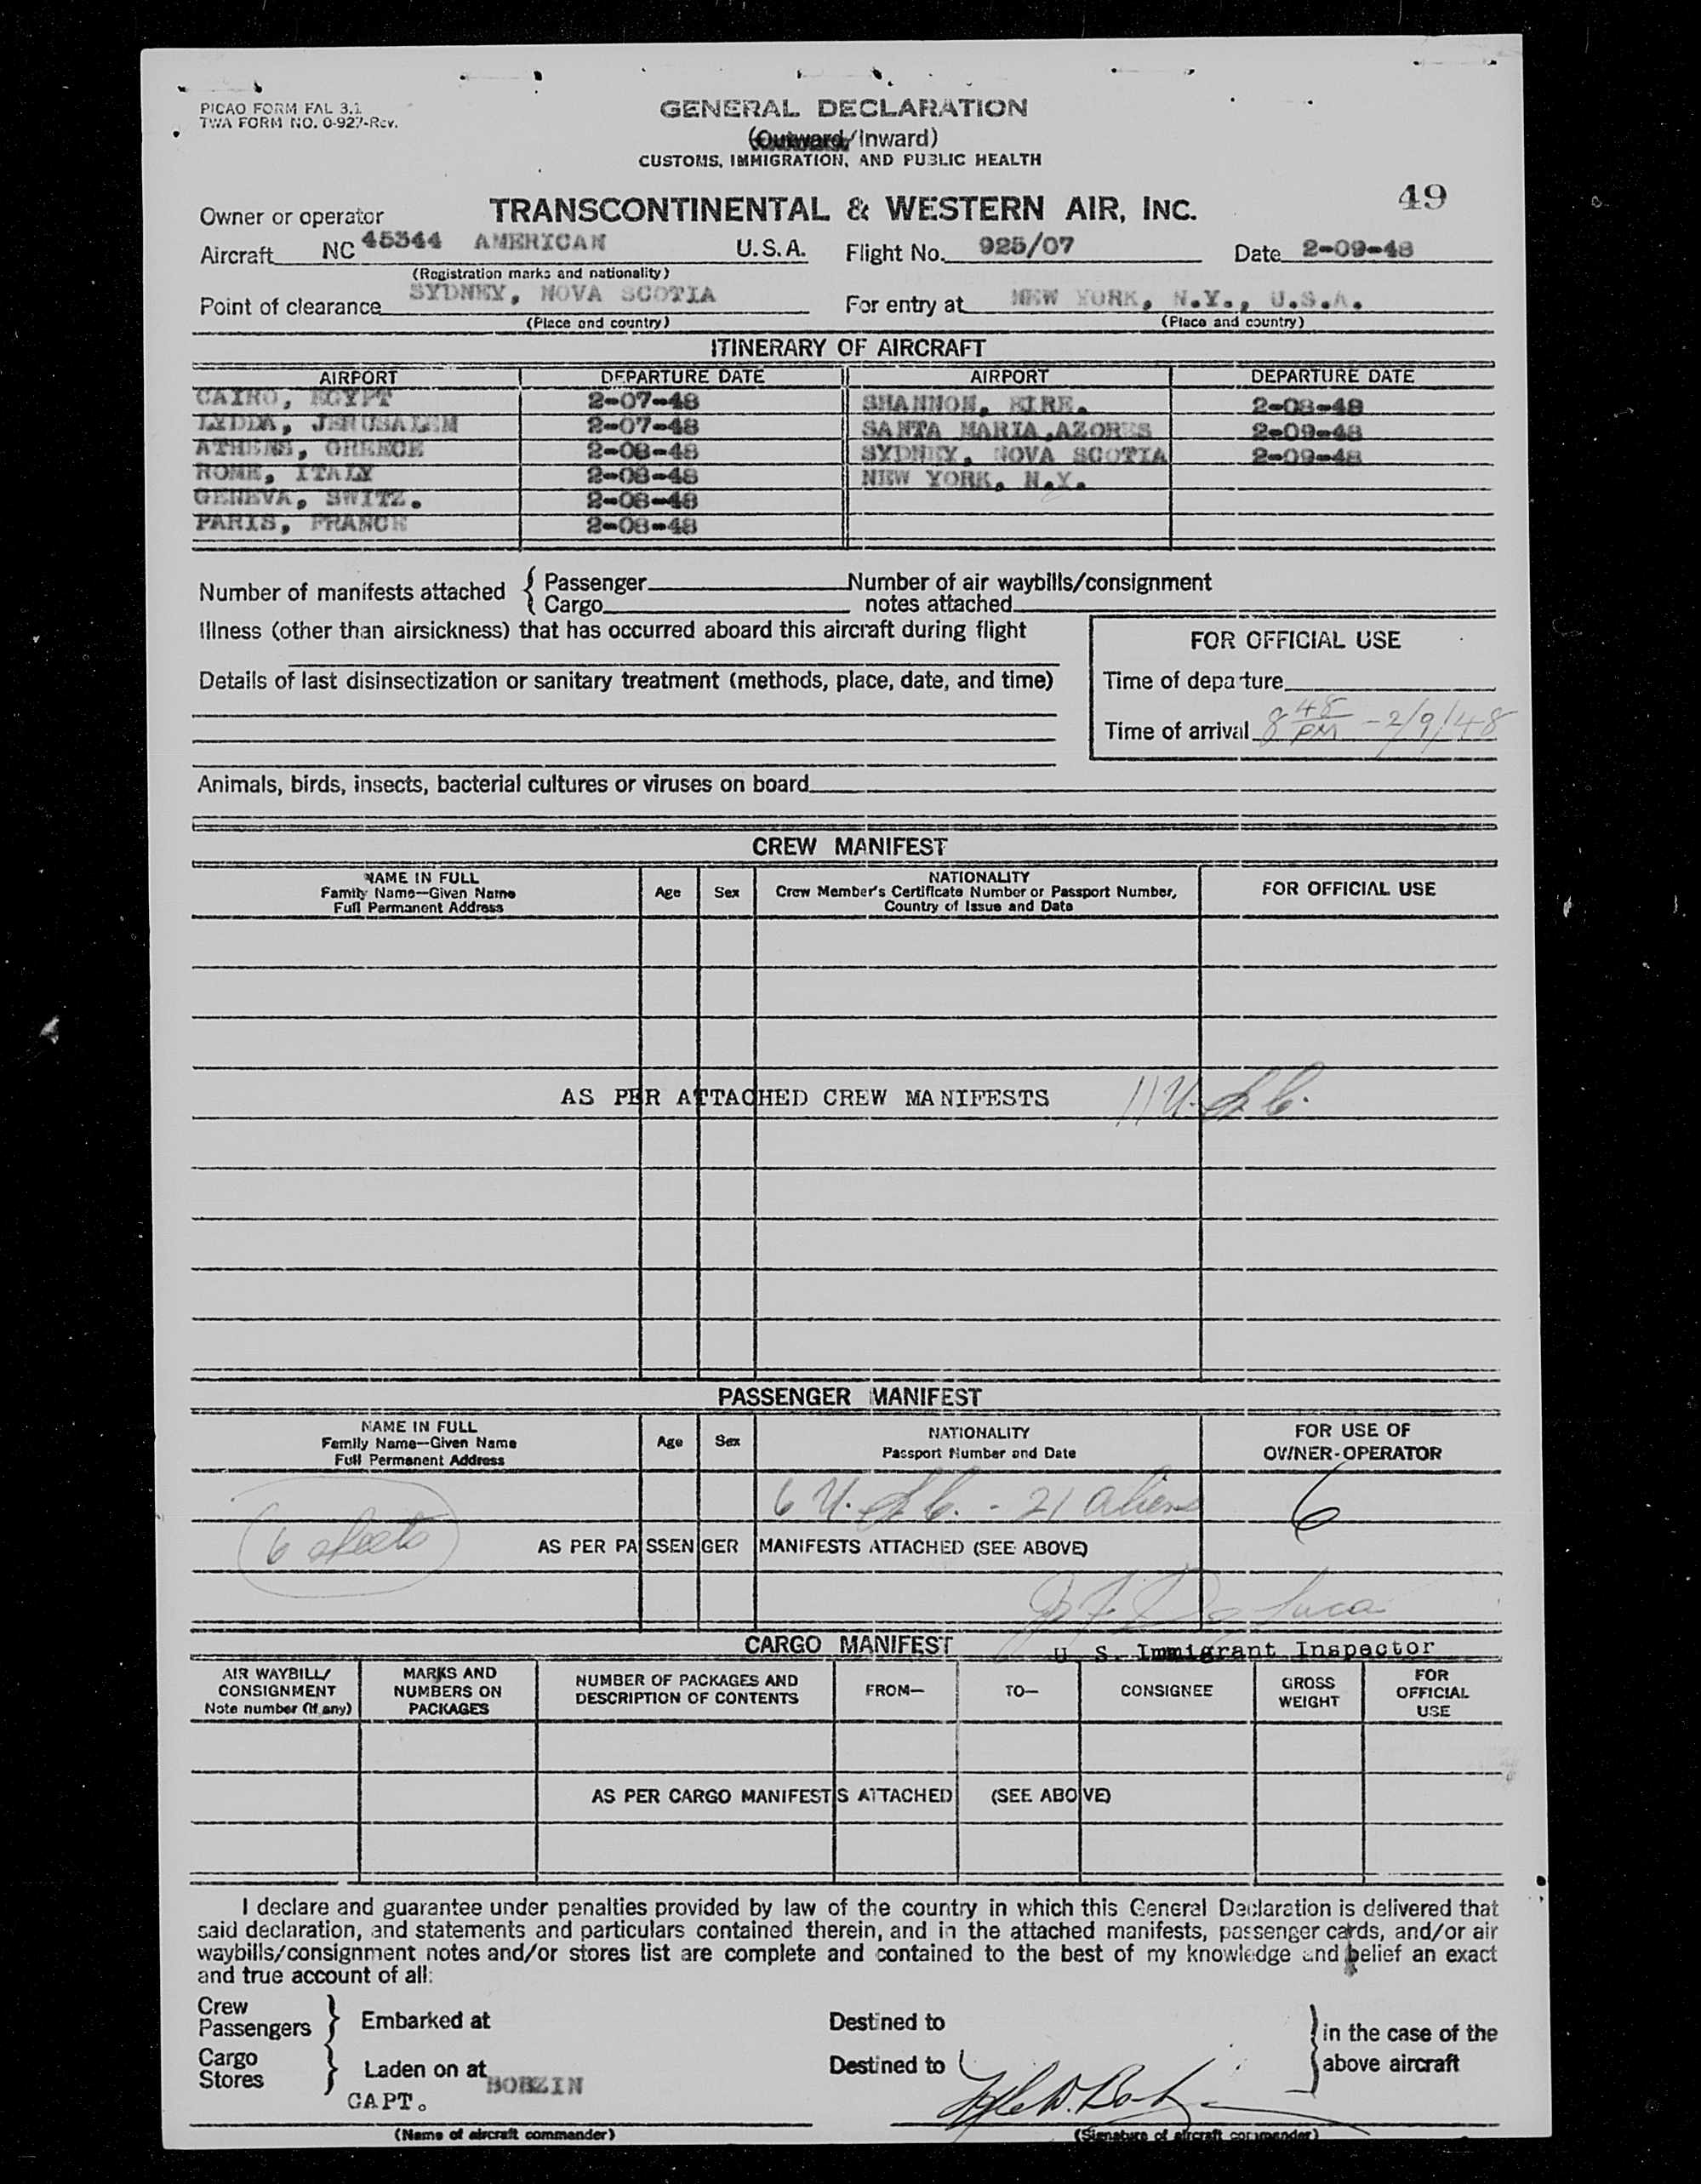 PICAO FORM FAL 3.1
TWA FORM NO. O-927-Rev.
GENERAL DECLARATION
(Outward/Inward)
CUSTOMS, IMMIGRATION, AND PUBLIC HEALTH
49
Owner or operator TRANSCONTINENTAL & WESTERN AIR, INC.
Aircraft NC 45344 AMERICAN U.S.A. Flight No. 925/07 Date 2-09-48
(Registration marks and nationality)
Point of clearance SYDNEY, NOVA SCOTIA For entry at NEW YORK, N.Y., U.S.A.
(Place and country) (Place and country)
ITINERARY OF AIRCRAFT
AIRPORT DEPARTURE DATE AIRPORT DEPARTURE DATE
CAIRO, EGYPT 2-07-48 SHANNON, EIRE. 2-08-48
LYDDA, JERUSALEM 2-07-48 SANTA MARIA,AZORES 2-09-48
ATHENS, GREECE 2-08-48 SYDNEY, NOVA SCOTIA 2-09-48
ROME, ITALY 2-08-48 NEW YORK, N.Y.
GENEVA, SWITZ. 2-08-48
PARIS, FRANCE 2-08-48
Number of manifests attached { Passenger Number of air waybills/consignment
Cargo notes attached
Illness (other than airsickness) that has occurred aboard this aircraft during flight
FOR OFFICIAL USE
Details of last disinsectization or sanitary treatment (methods, place, date, and time)
Time of departure
Time of arrival 8 48 PM - 2/9/48
Animals, birds, insects, bacterial cultures or viruses on board
CREW MANIFEST
NAME IN FULL
Family Name—Given Name
Full Permanent Address
Age Sex
NATIONALITY
Crew Member's Certificate Number or Passport Number,
Country of Issue and Date
FOR OFFICIAL USE
AS PER ATTACHED CREW MANIFESTS 11 U.S.C.
PASSENGER MANIFEST
NAME IN FULL
Family Name—Given Name
Full Permanent Address
Age Sex
NATIONALITY
Passport Number and Date
FOR USE OF
OWNER-OPERATOR
6 U.S.C. - 21 aliens 6
6
AS PER PASSENGER MANIFESTS ATTACHED (SEE ABOVE)
CARGO MANIFEST
U S. Immigrant Inspector
AIR WAYBILL/
CONSIGNMENT
Note number (if any)
MARKS AND
NUMBERS ON
PACKAGES
NUMBER OF PACKAGES AND
DESCRIPTION OF CONTENTS
FROM—
TO—
CONSIGNEE
GROSS
WEIGHT
FOR
OFFICIAL
USE
AS PER CARGO MANIFESTS ATTACHED (SEE ABOVE)
I declare and guarantee under penalties provided by law of the country in which this General Declaration is delivered that
said declaration, and statements and particulars contained therein, and in the attached manifests, passenger cards, and/or air
waybills/consignment notes and/or stores list are complete and contained to the best of my knowledge and belief an exact
and true account of all:
Crew
Passengers } Embarked at Destined to } in the case of the
Cargo
Stores } Laden on at Destined to above aircraft
CAPT. BOBZIN
(Name of aircraft commander) (Signature of aircraft commander)